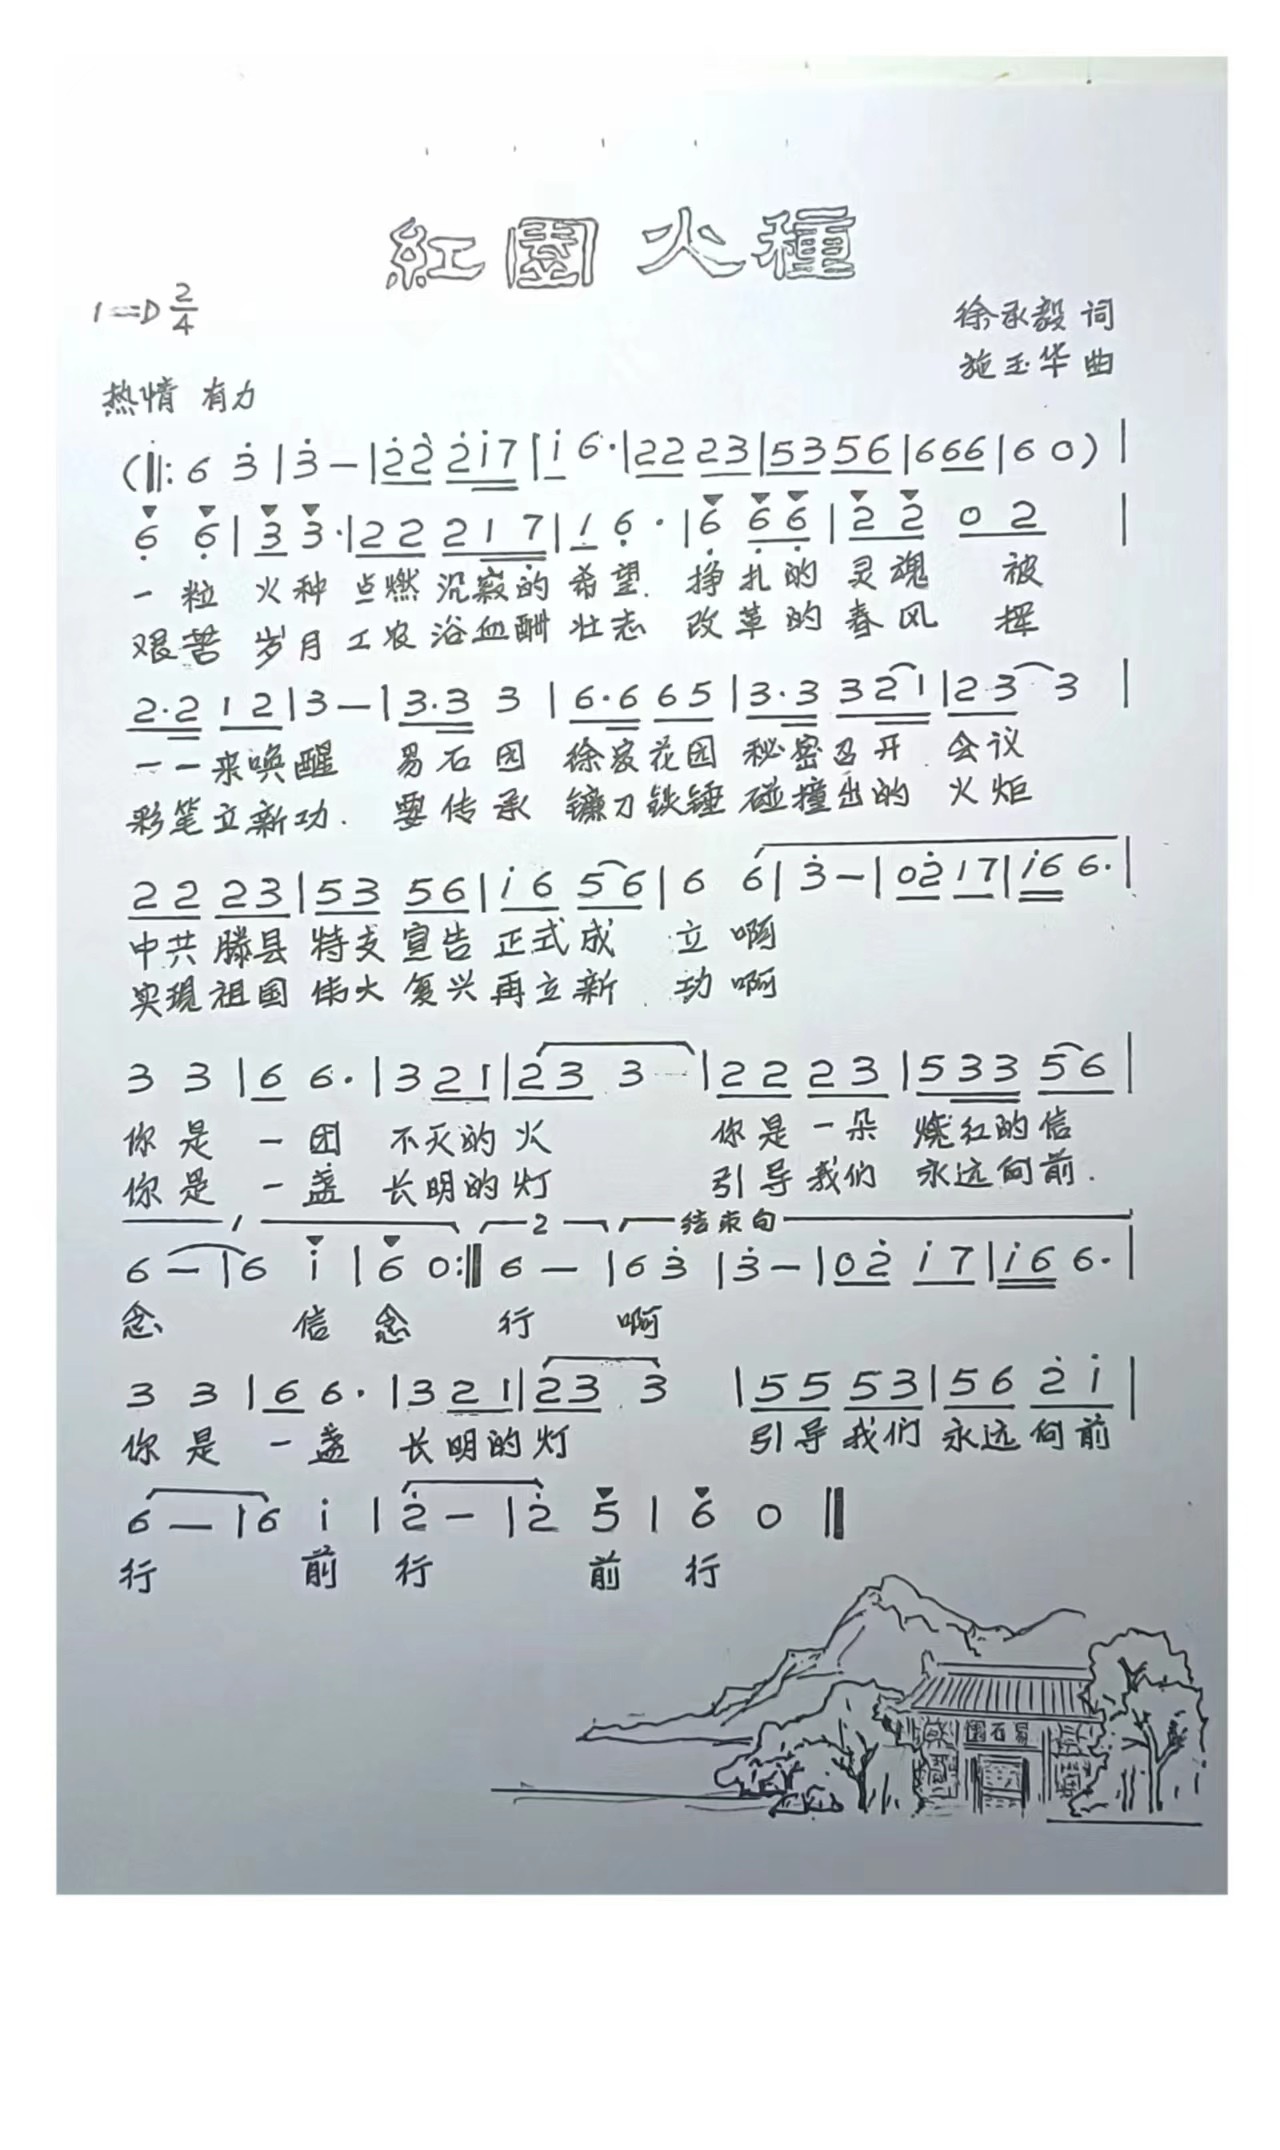 紅園火種
1=D 2/4
徐承毅 词
施玉华 曲
热情 有力
(‖: 6 3̇ | 3̇ — | 2̇2̇ 2̇i7 | i 6· | 22 23 | 53 56 | 666 | 6 0 ) |
6̣ 6̣ | 3 3· | 22 217̣ | 1 6̣· | 6̣ 6̣6̣ | 2 2 0 2 |
一粒 火种 点燃 沉寂的 希望. 挣扎的 灵魂 被
艰苦 岁月 工农 浴血酬 壮志 改革的 春风 挥
2·2 12 | 3 — | 3·3 3 | 6·6 65 | 3·3 321 | 23 3 |
一一来唤醒 易石园 徐家花园 秘密召开 会议
彩笔立新功. 要传承 镰刀铁锤 碰撞出的 火炬
22 23 | 53 56 | i6 56 | 6 6 | 3̇ — | 02̇ 17 | i6 6· |
中共 滕县 特支 宣告 正式成 立 啊
实现 祖国 伟大 复兴 再立新 功 啊
3 3 | 6 6· | 3 21 | 23 3 | 22 23 | 533 56 |
你是 一团 不灭的火 你是一朵 烧红的信
你是 一盏 长明的灯 引导我们 永远向前.
1 2 结束句
6 — | 6 i | 6 0 :‖ 6 — | 6 3̇ | 3̇ — | 02̇ i7 | i6 6· |
念 信念 行 啊
3 3 | 6 6· | 3 21 | 23 3 | 55 53 | 56 2̇i |
你是 一盏 长明的灯 引导我们 永远向前
6 — | 6 i | 2̇ — | 2̇ 5 | 6 0 ‖
行 前 行 前 行
園石易